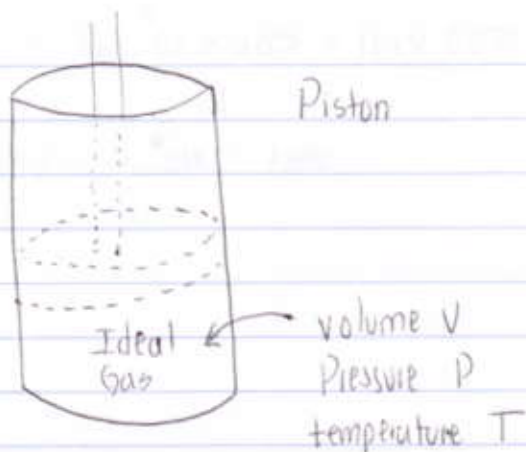 Piston
Ideal
Gas
volume V
Pressure P
temperature T